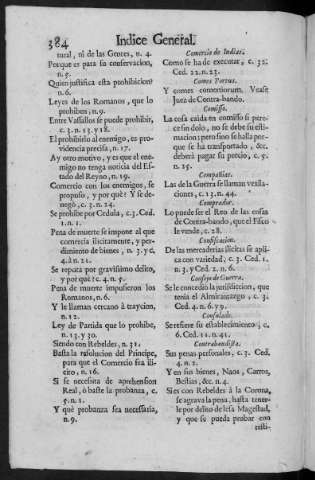 384
Indice General.
tural, ni de las Gentes, n. 4.
Porque es para su conservacion,
n. 5.
Quien justifica esta prohibicion?
n. 6.
Leyes de los Romanos, que lo
prohiben, n. 9.
Entre Vassallos se puede prohibir,
c. 3. n. 13. y 18.
El prohibirlo al enemigo, es pro-
videncia precisa, n. 17.
Ay otro motivo, y es que el ene-
migo no tenga noticia del Es-
tado del Reyno, n. 19.
Comercio con los enemigos, se
propuso, y por què? Y se de-
negò, c. 3. n. 24.
Se prohibe por Cedula, c. 3. Ced.
1. n. 1.
Pena de muerte se impone al que
comercia ilicitamente, y per-
dimiento de bienes, n. 3. y c.
4. à n. 21.
Se reputa por gravissimo delito,
y por què? c. 4. n. 5.
Pena de muerte impusieron los
Romanos, n. 6.
Y le llaman cercano à traycion,
n. 12.
Ley de Partida que lo prohibe,
n. 13. y 30.
Siendo con Rebeldes, n. 31.
Basta la resolucion del Principe,
para que el Comercio sea ili-
cito, n. 16.
Si se necessita de aprehension
Real, ò baste la probanza, c.
5. n. 1.
Y què probanza sea necessaria,
n. 9.
Comercio de Indias.
Como se ha de executar, c. 32.
Ced. 22. n. 23.
Comes Portus.
Y comes comertiorum. Vease
Juez de Contra-bando.
Comisso.
La cosa caida en comisso si pere-
ce sin dolo, no se debe su esti-
macion: pero sino se halla por-
que se ha transportado, &c.
deberà pagar su precio, c. 5.
n. 25.
Compañias.
Las de la Guerra se llaman vexilla-
ciones, c. 13. n. 44.
Comprador.
Lo puede ser el Reo de las cosas
de Contra-bando, que el Fisco
le vende, c. 28.
Confiscacion.
De las mercaderias ilicitas se apli-
ca con variedad, c. 3. Ced. 1.
n. 3. y Ced. 2. n. 6.
Consejo de Guerra.
Se le concediò la jurisdiccion, que
tenia el Almirantazgo, c. 3.
Ced. 4. n. 6. y 9.
Consulado.
Se refiere su establecimiento, c.
6. Ced. 12. n. 41.
Contrabandista.
Sus penas personales, c. 3. Ced.
4. n. 2.
Y en sus bienes, Naos, Carros,
Bestias, &c. n. 4.
Si es con Rebeldes à la Corona,
se agrava la pena, hasta tener-
le por delito de lesa Magestad,
y que se pueda probar con
testi-